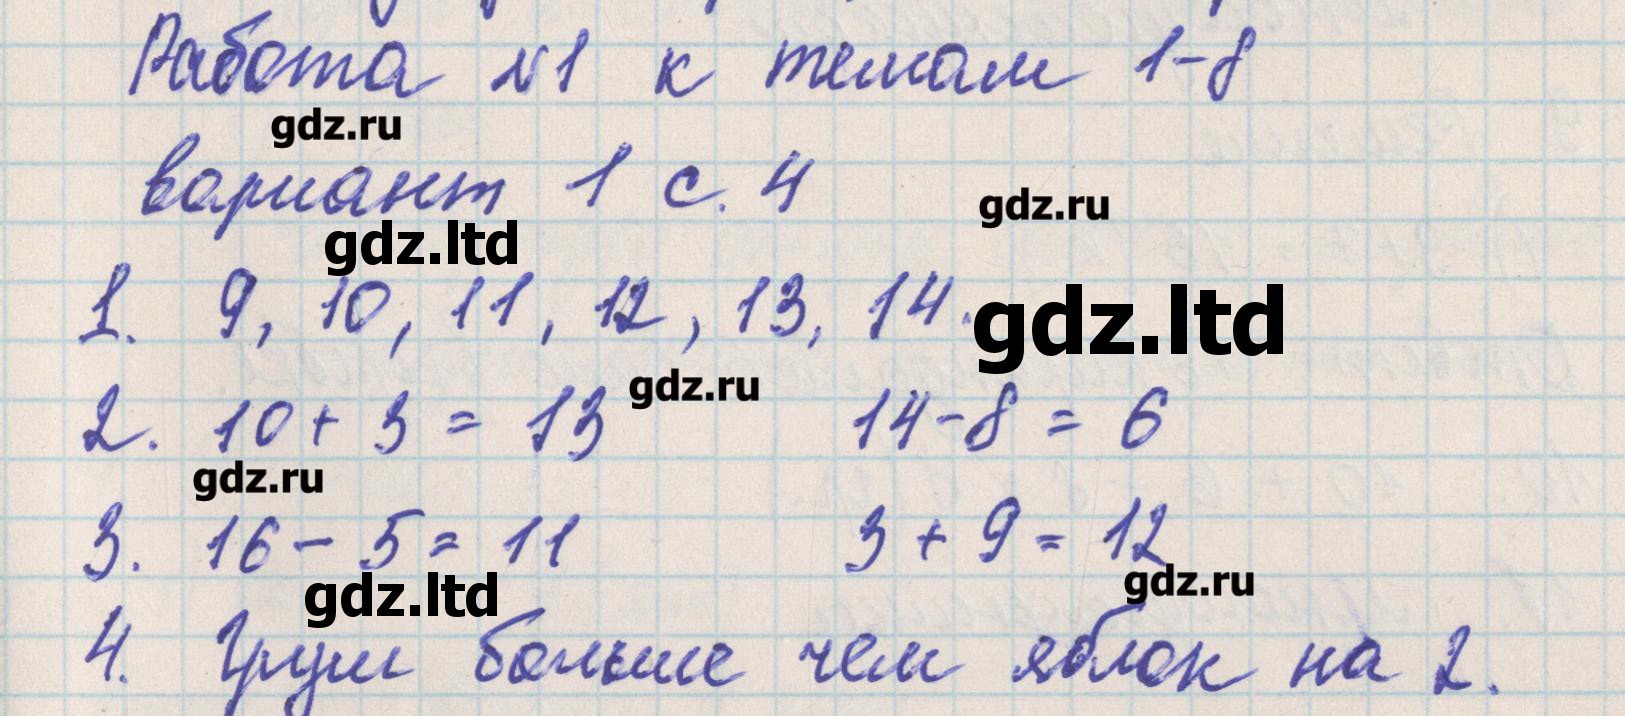 Работа №1 к темам 1-8
gdz.ru
вариант 1 с. 4
gdz.ru
gdz.ltd
1. 9, 10, 11, 12, 13, 14.
gdz.ltd
gdz.ru
2. 10 + 3 = 13 14 - 8 = 6
gdz.ru
3. 16 - 5 = 11 3 + 9 = 12
gdz.ltd
gdz.ru
4. Груш больше чем яблок на 2.